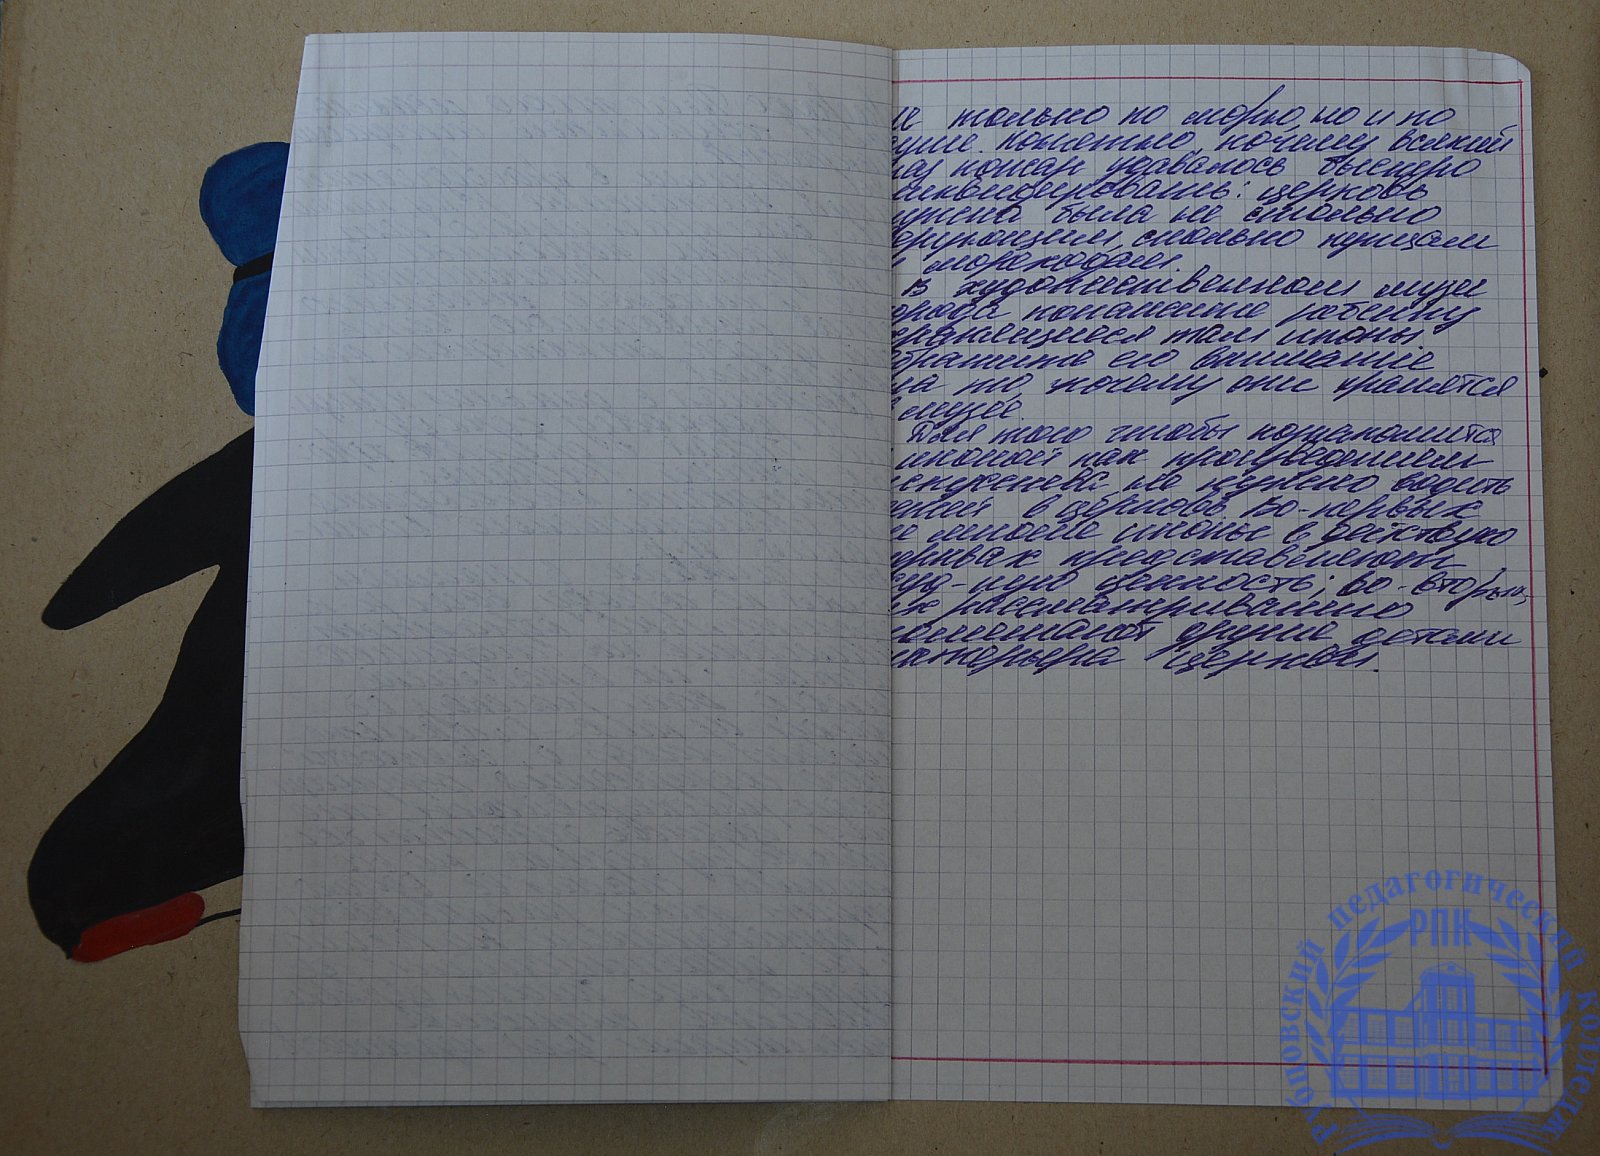 не только по морю, но и по
суше. Понятно, почему всякий
раз пожар удавалось быстро
ликвидировать: церковь
нужна была не столько
верующим, сколько купцам
и мореходам.
В художественном музее
города покажите ребенку
хранящиеся там иконы
обратите его внимание
на то, почему они хранятся
в музее.
Для того чтобы познакомится
с иконой как произведением
искусства не нужно водить
детей в церковь. Во-первых
не многие иконы в действую
церквах представляют
худ-ную ценность; во-вторых,
их рассматриванию
помешают другие детали
интерьера церкви.
Рубцовский педагогический колледж
РПК